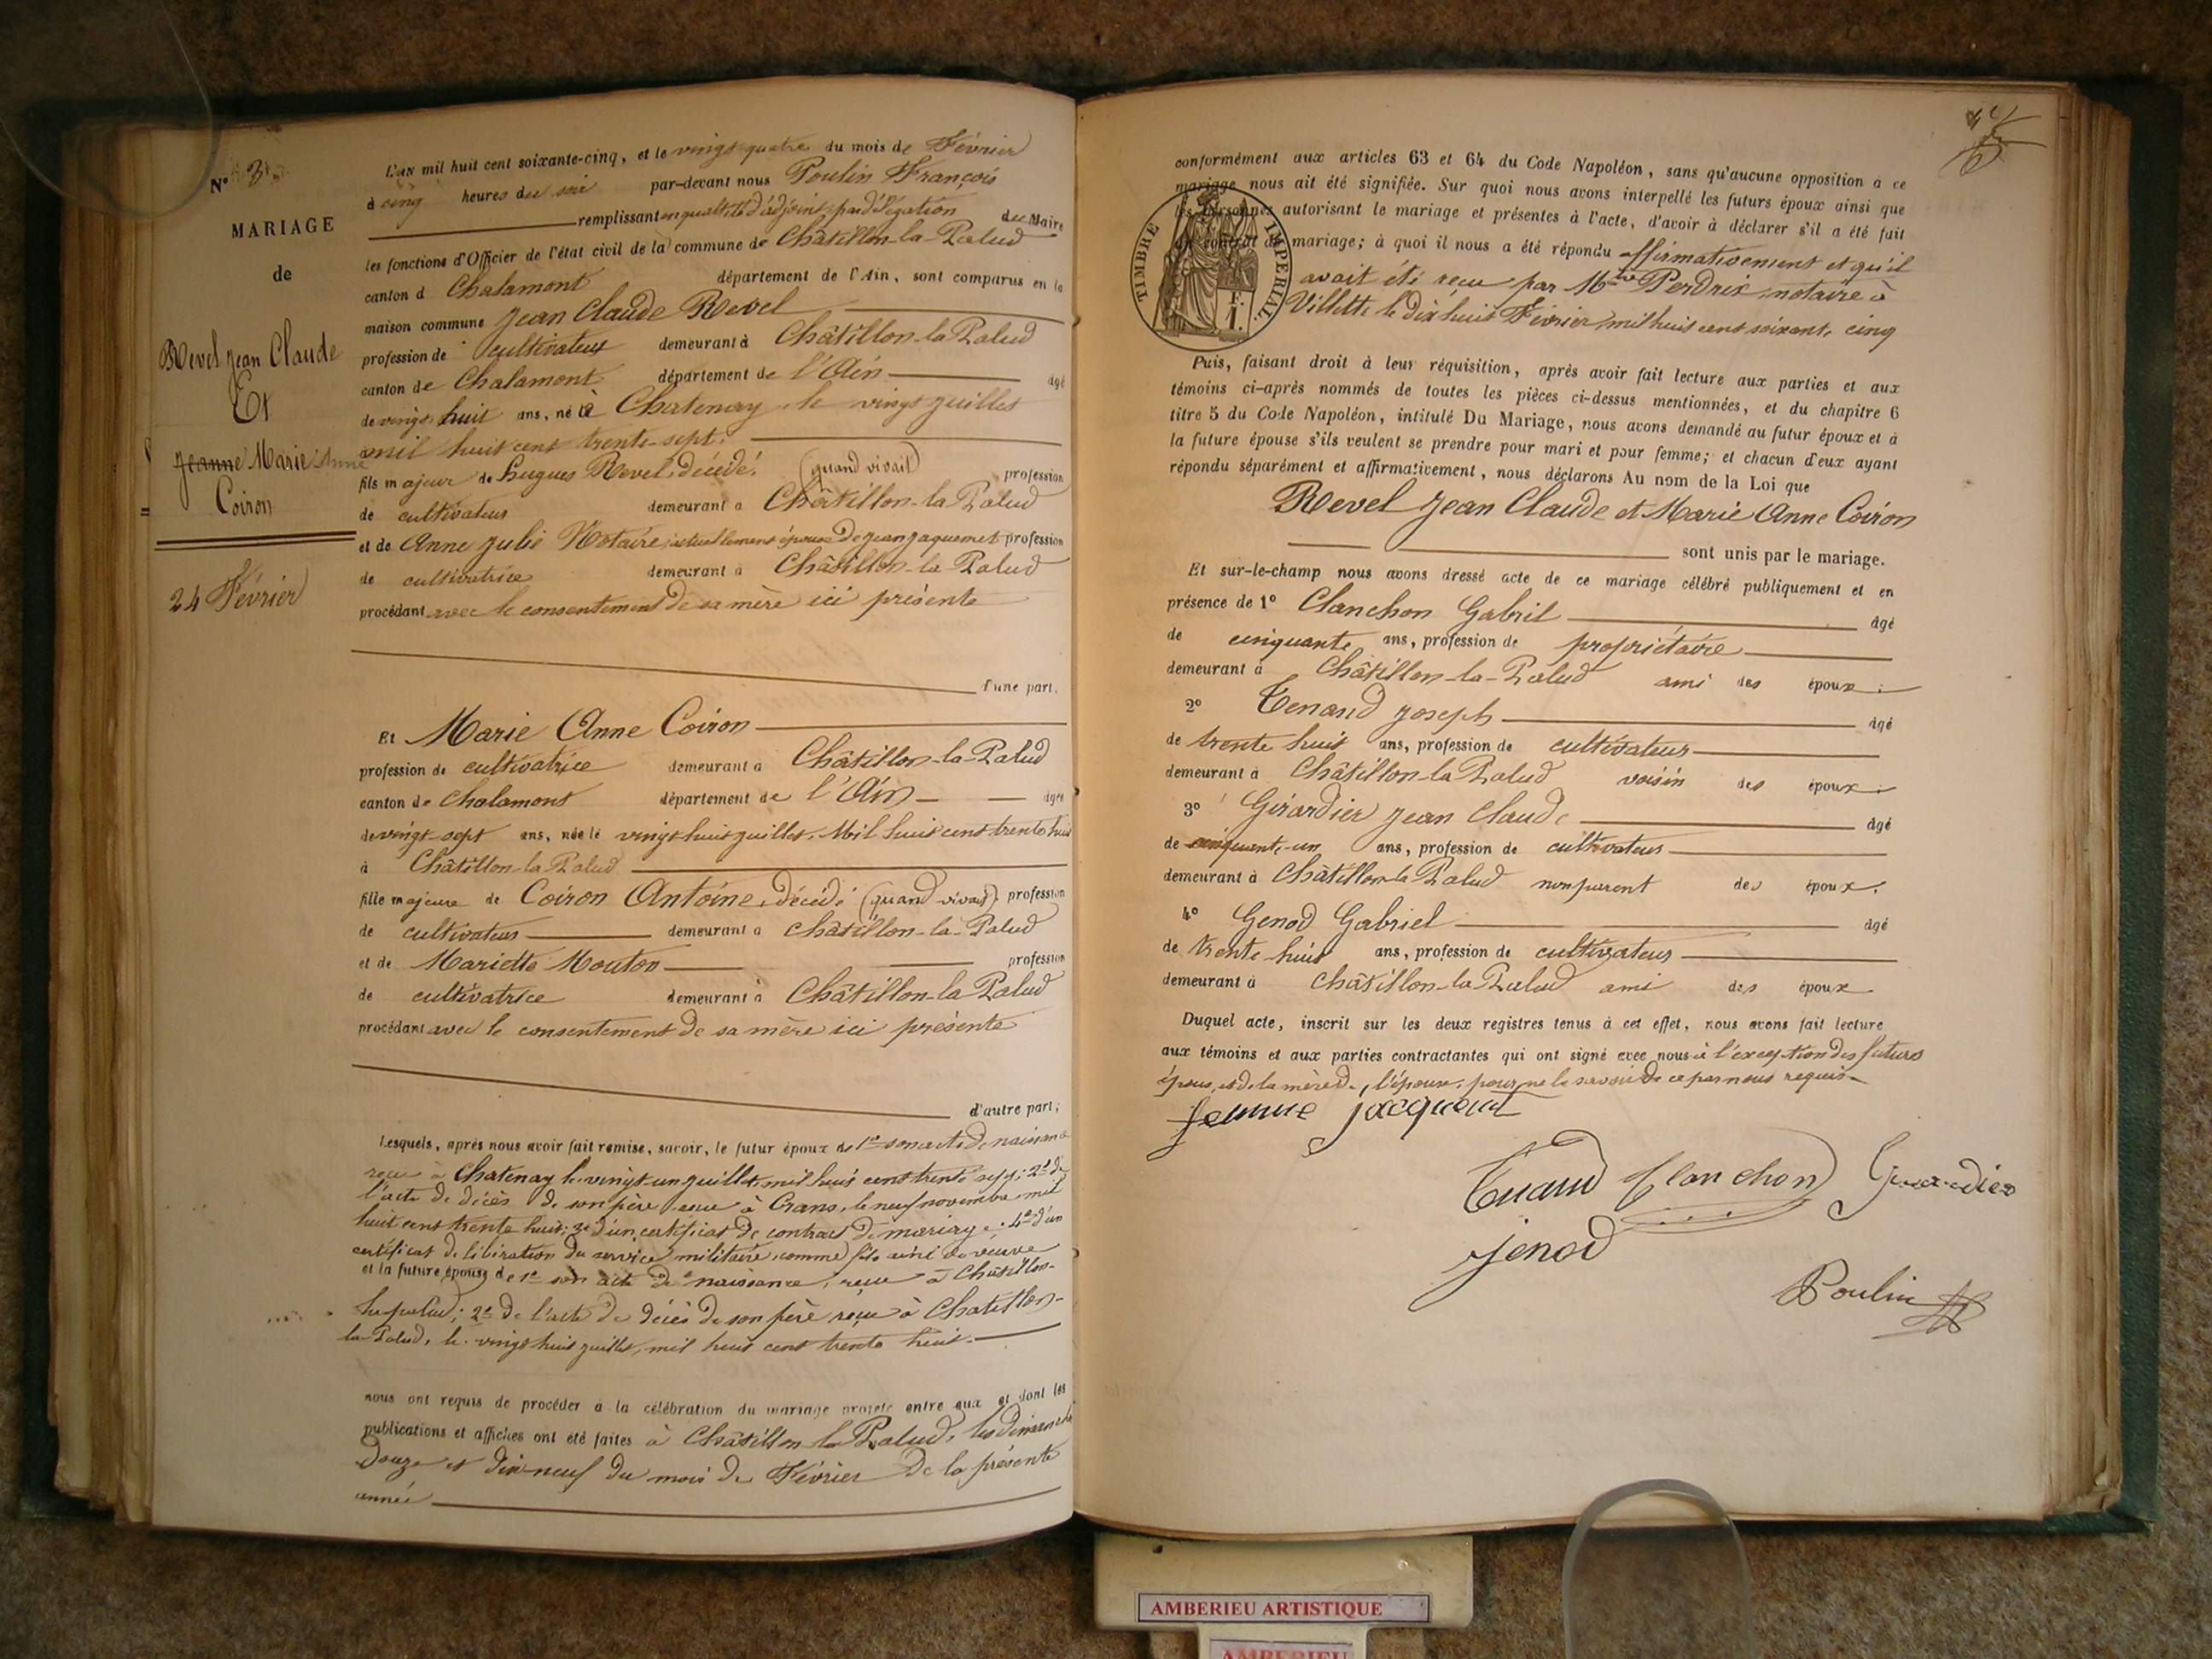 N° 3
MARIAGE
de
Revel Jean Claude
Et
Jeanne Marie Anne
Coiron
24 Février
L'AN mil huit cent soixante-cinq, et le vingt-quatre du mois de Février
à cinq heures du soir par-devant nous Poulin François
remplissant en qualité d'adjoint par délégation du Maire
les fonctions d'Officier de l'état civil de la commune de Châtillon-la-Palud
canton d Chalamont département de l'Ain, sont comparus en la
maison commune Jean Claude Revel
profession de cultivateur demeurant à Châtillon-la-Palud
canton de Chalamont département de l'Ain âgé
de vingt huit ans, né à Chatenay le vingt juillet
mil huit cent trente-sept.
fils majeur de Hugues Revel, décédé, (quand vivait) profession
de cultivateur demeurant à Châtillon-la-Palud
et de Anne Julie Notaire, actuellement épouse de Jean Jaquemet profession
de cultivatrice demeurant à Châtillon-la-Palud
procédant avec le consentement de sa mère ici présente
d'une part.
Et Marie Anne Coiron
profession de cultivatrice demeurant à Châtillon-la-Palud
canton de Chalamont département de l'Ain âgée
de vingt-sept ans, née le vingt huit juillet, Mil huit cent trente huit
à Châtillon-la-Palud
fille majeure de Coiron Antoine, décédé (quand vivait) profession
de cultivateur demeurant à Châtillon-la-Palud
et de Mariette Mouton profession
de cultivatrice demeurant à Châtillon-la-Palud
procédant avec le consentement de sa mère ici présente
d'autre part;
Lesquels, après nous avoir fait remise, savoir, le futur époux de 1° son acte de naissance
reçu à Chatenay le vingt-un juillet mil huit cent trente sept; 2° de
l'acte de décès de son père reçu à Crans, le neuf novembre mil
huit cent trente huit; 3° d'un certificat de contrat de mariage; 4° d'un
certificat de libération du service militaire comme fils aîné de veuve
et la future épouse de 1° son acte de naissance, reçu à Châtillon-
la-palud; 2° de l'acte de décès de son père reçu à Chatillon-
la-Palud, le vingt huit juillet, mil huit cent trente huit
nous ont requis de procéder à la célébration du mariage projeté entre eux et dont les
publications et affiches ont été faites à Châtillon-la-Palud, les dimanches
Douze et dix-neuf du mois de Février de la présente
année
conformément aux articles 63 et 64 du Code Napoléon, sans qu'aucune opposition à ce
mariage nous ait été signifiée. Sur quoi nous avons interpellé les futurs époux ainsi que
les personnes autorisant le mariage et présentes à l'acte, d'avoir à déclarer s'il a été fait
un contrat de mariage; à quoi il nous a été répondu affirmativement et qu'il
avait été reçu par Mtre Perdrix, notaire à
Villette le dix huit Février mil huit cent soixante cinq
TIMBRE IMPÉRIAL
Puis, faisant droit à leur réquisition, après avoir fait lecture aux parties et aux
témoins ci-après nommés de toutes les pièces ci-dessus mentionnées, et du chapitre 6
titre 5 du Code Napoléon, intitulé Du Mariage, nous avons demandé au futur époux et à
la future épouse s'ils veulent se prendre pour mari et pour femme; et chacun d'eux ayant
répondu séparément et affirmativement, nous déclarons Au nom de la Loi que
Revel Jean Claude et Marie Anne Coiron
sont unis par le mariage.
Et sur-le-champ nous avons dressé acte de ce mariage célébré publiquement et en
présence de 1° Clanchon Gabriel âgé
de cinquante ans, profession de propriétaire
demeurant à Châtillon-la-Palud ami des époux.
2° Tenand Joseph âgé
de trente huit ans, profession de cultivateur
demeurant à Châtillon-la-Palud voisin des époux.
3° Girardier Jean Claude âgé
de cinquante-un ans, profession de cultivateur
demeurant à Châtillon-la-Palud non parent des époux.
4° Genod Gabriel âgé
de trente huit ans, profession de cultivateur
demeurant à Châtillon-la-Palud ami des époux
Duquel acte, inscrit sur les deux registres tenus à cet effet, nous avons fait lecture
aux témoins et aux parties contractantes qui ont signé avec nous à l'exception des futurs
époux, et de la mère de l'épouse, pour ne le savoir de ce par nous requis
femme jacquemet
Tenand Clanchon Girardier
Jenod
Poulin
AMBERIEU ARTISTIQUE
AMBERIEU